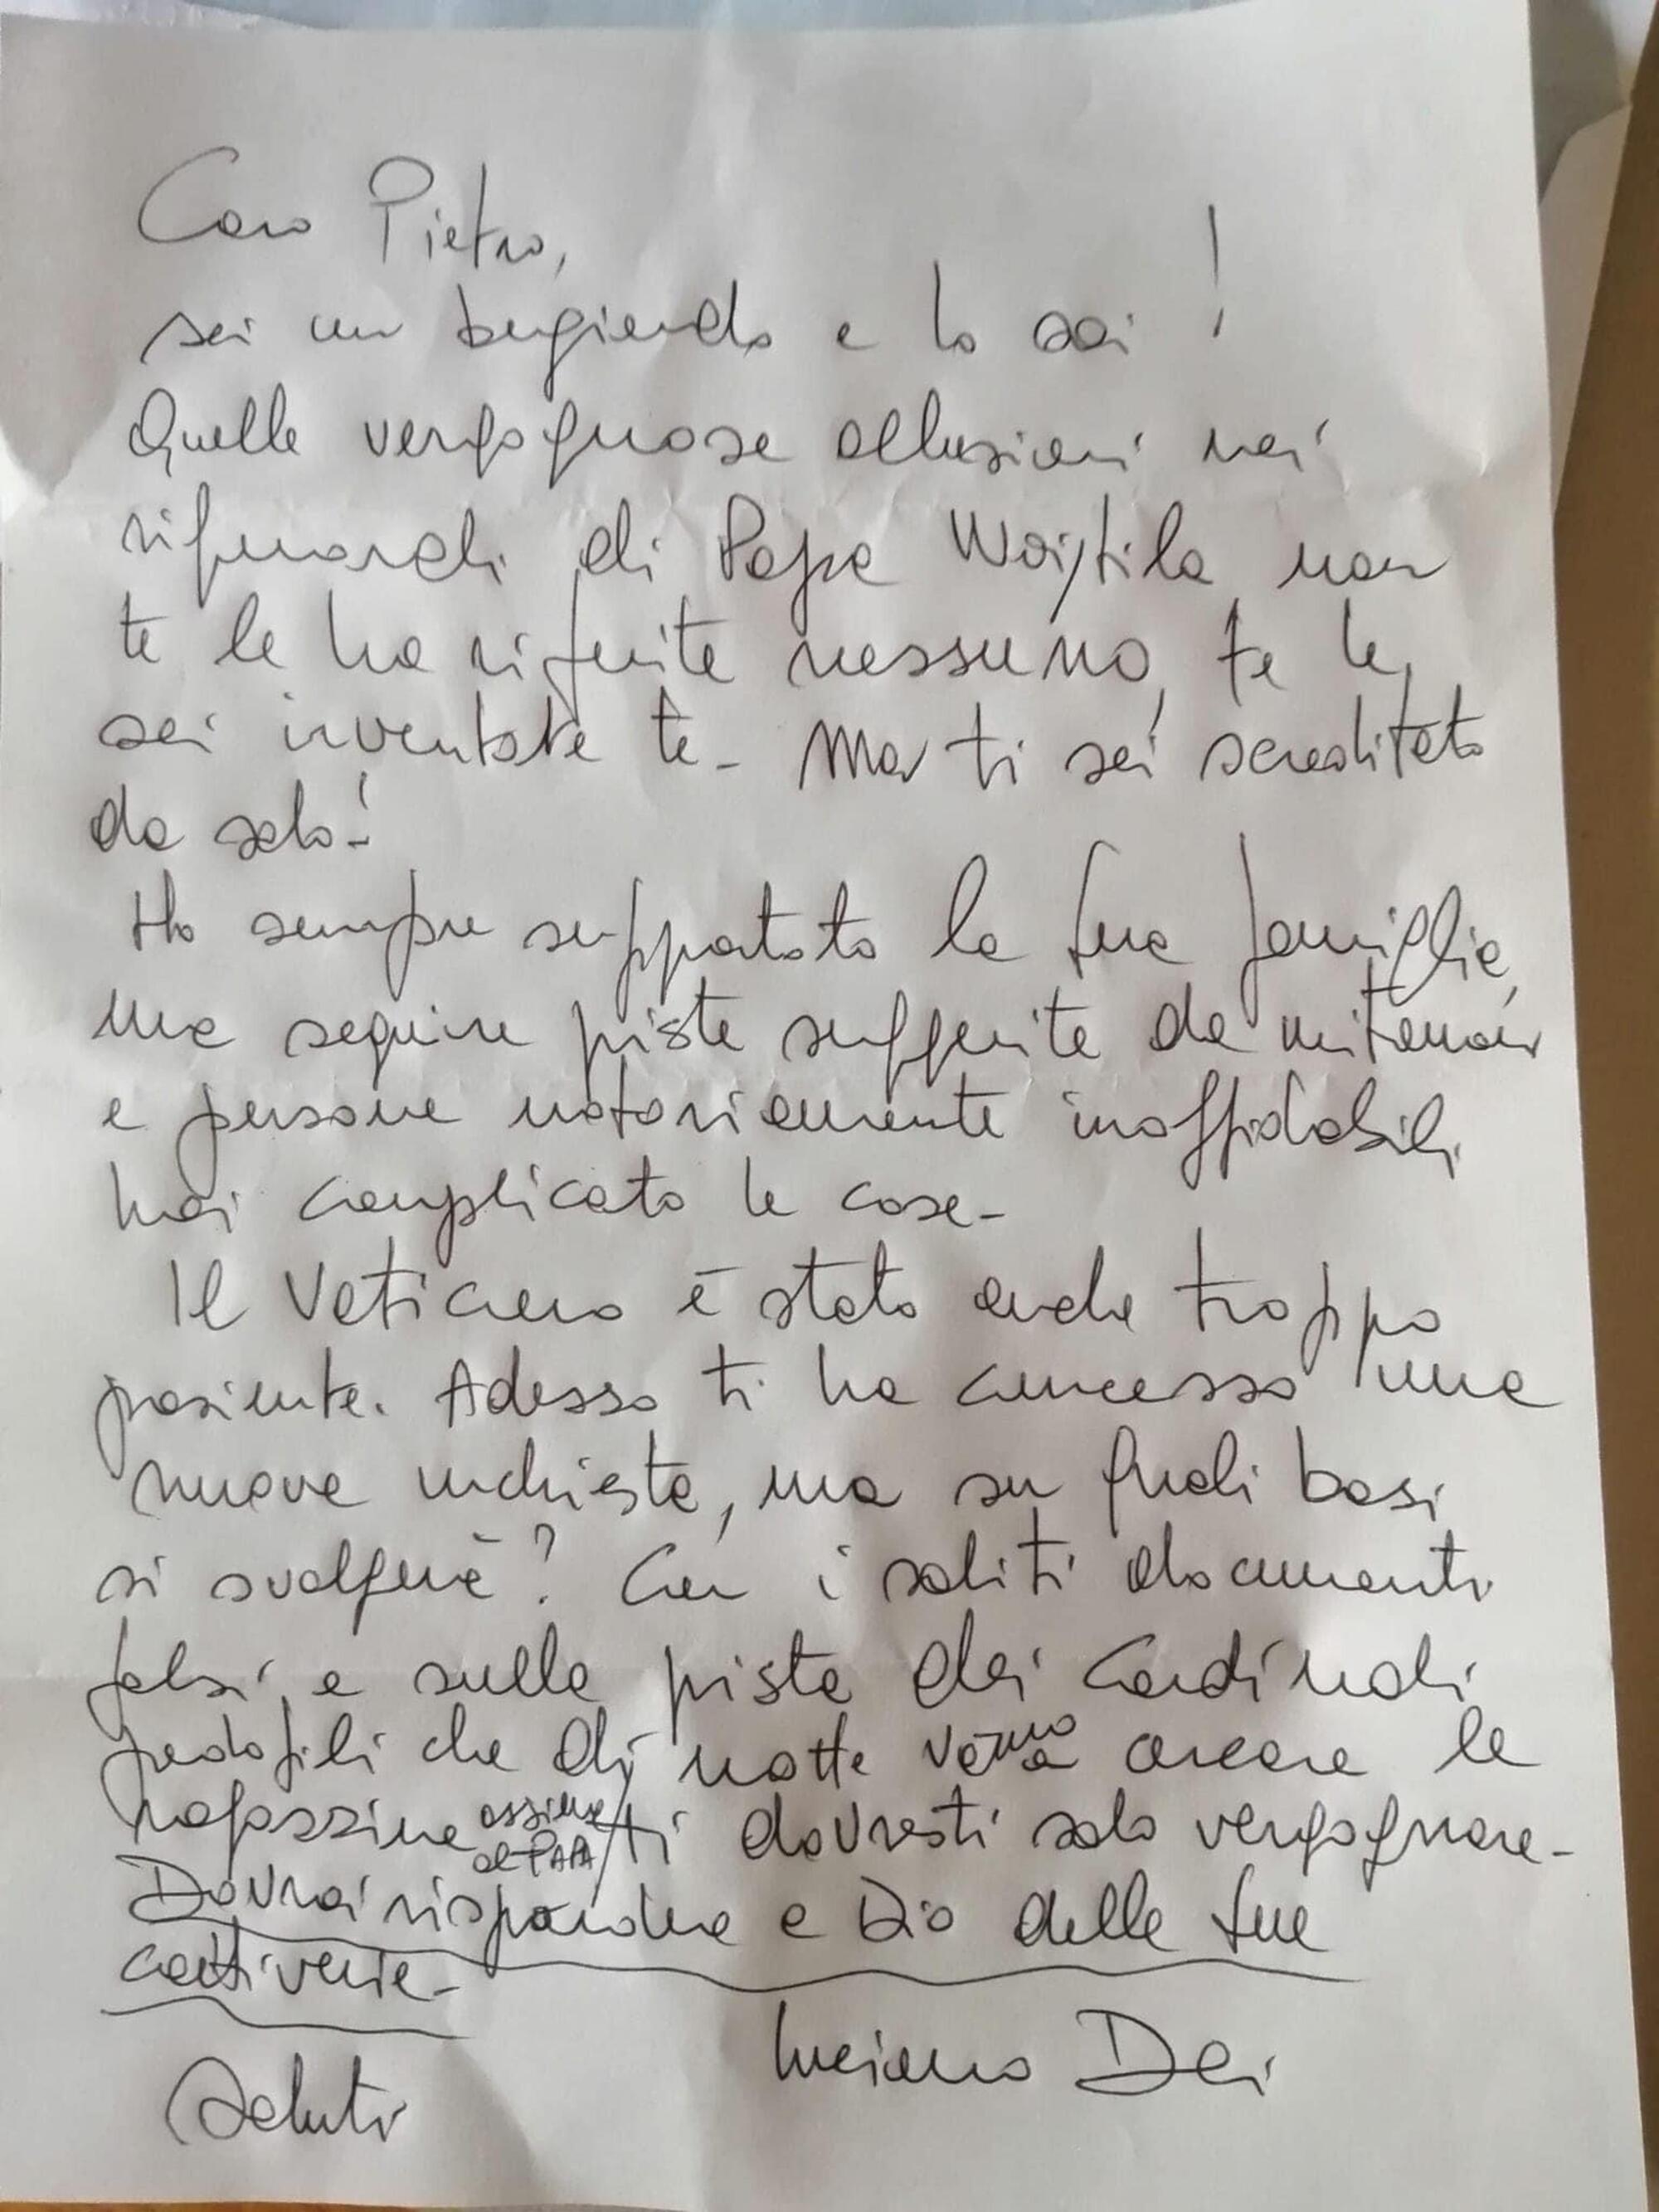 Caro Pietro,
sei un bugiardo e lo sai !
Quelle vergognose allusioni nei
riguardi di Papa Woijtila non
te le ha riferite nessuno, te le
sei inventate te - Ma ti sei screditato
da solo!
Ho sempre supportato la tua famiglia,
ma seguire piste suggerite da mitomani
e persone notoriamente inaffidabili
hai complicato le cose -
Il Vaticano è stato anche troppo
paziente. Adesso ti ha concesso una
nuova inchiesta, ma su quali basi
si svolgerà? Con i soliti documenti
falsi, e sulla pista dei Cardinali
pedofili che di notte vanno a cercare le
ragazzine assieme al PAPA ti dovresti solo vergognare -
Dovrai rispondere a Dio delle tue
cattiverie -
Luciano Dei
Saluti